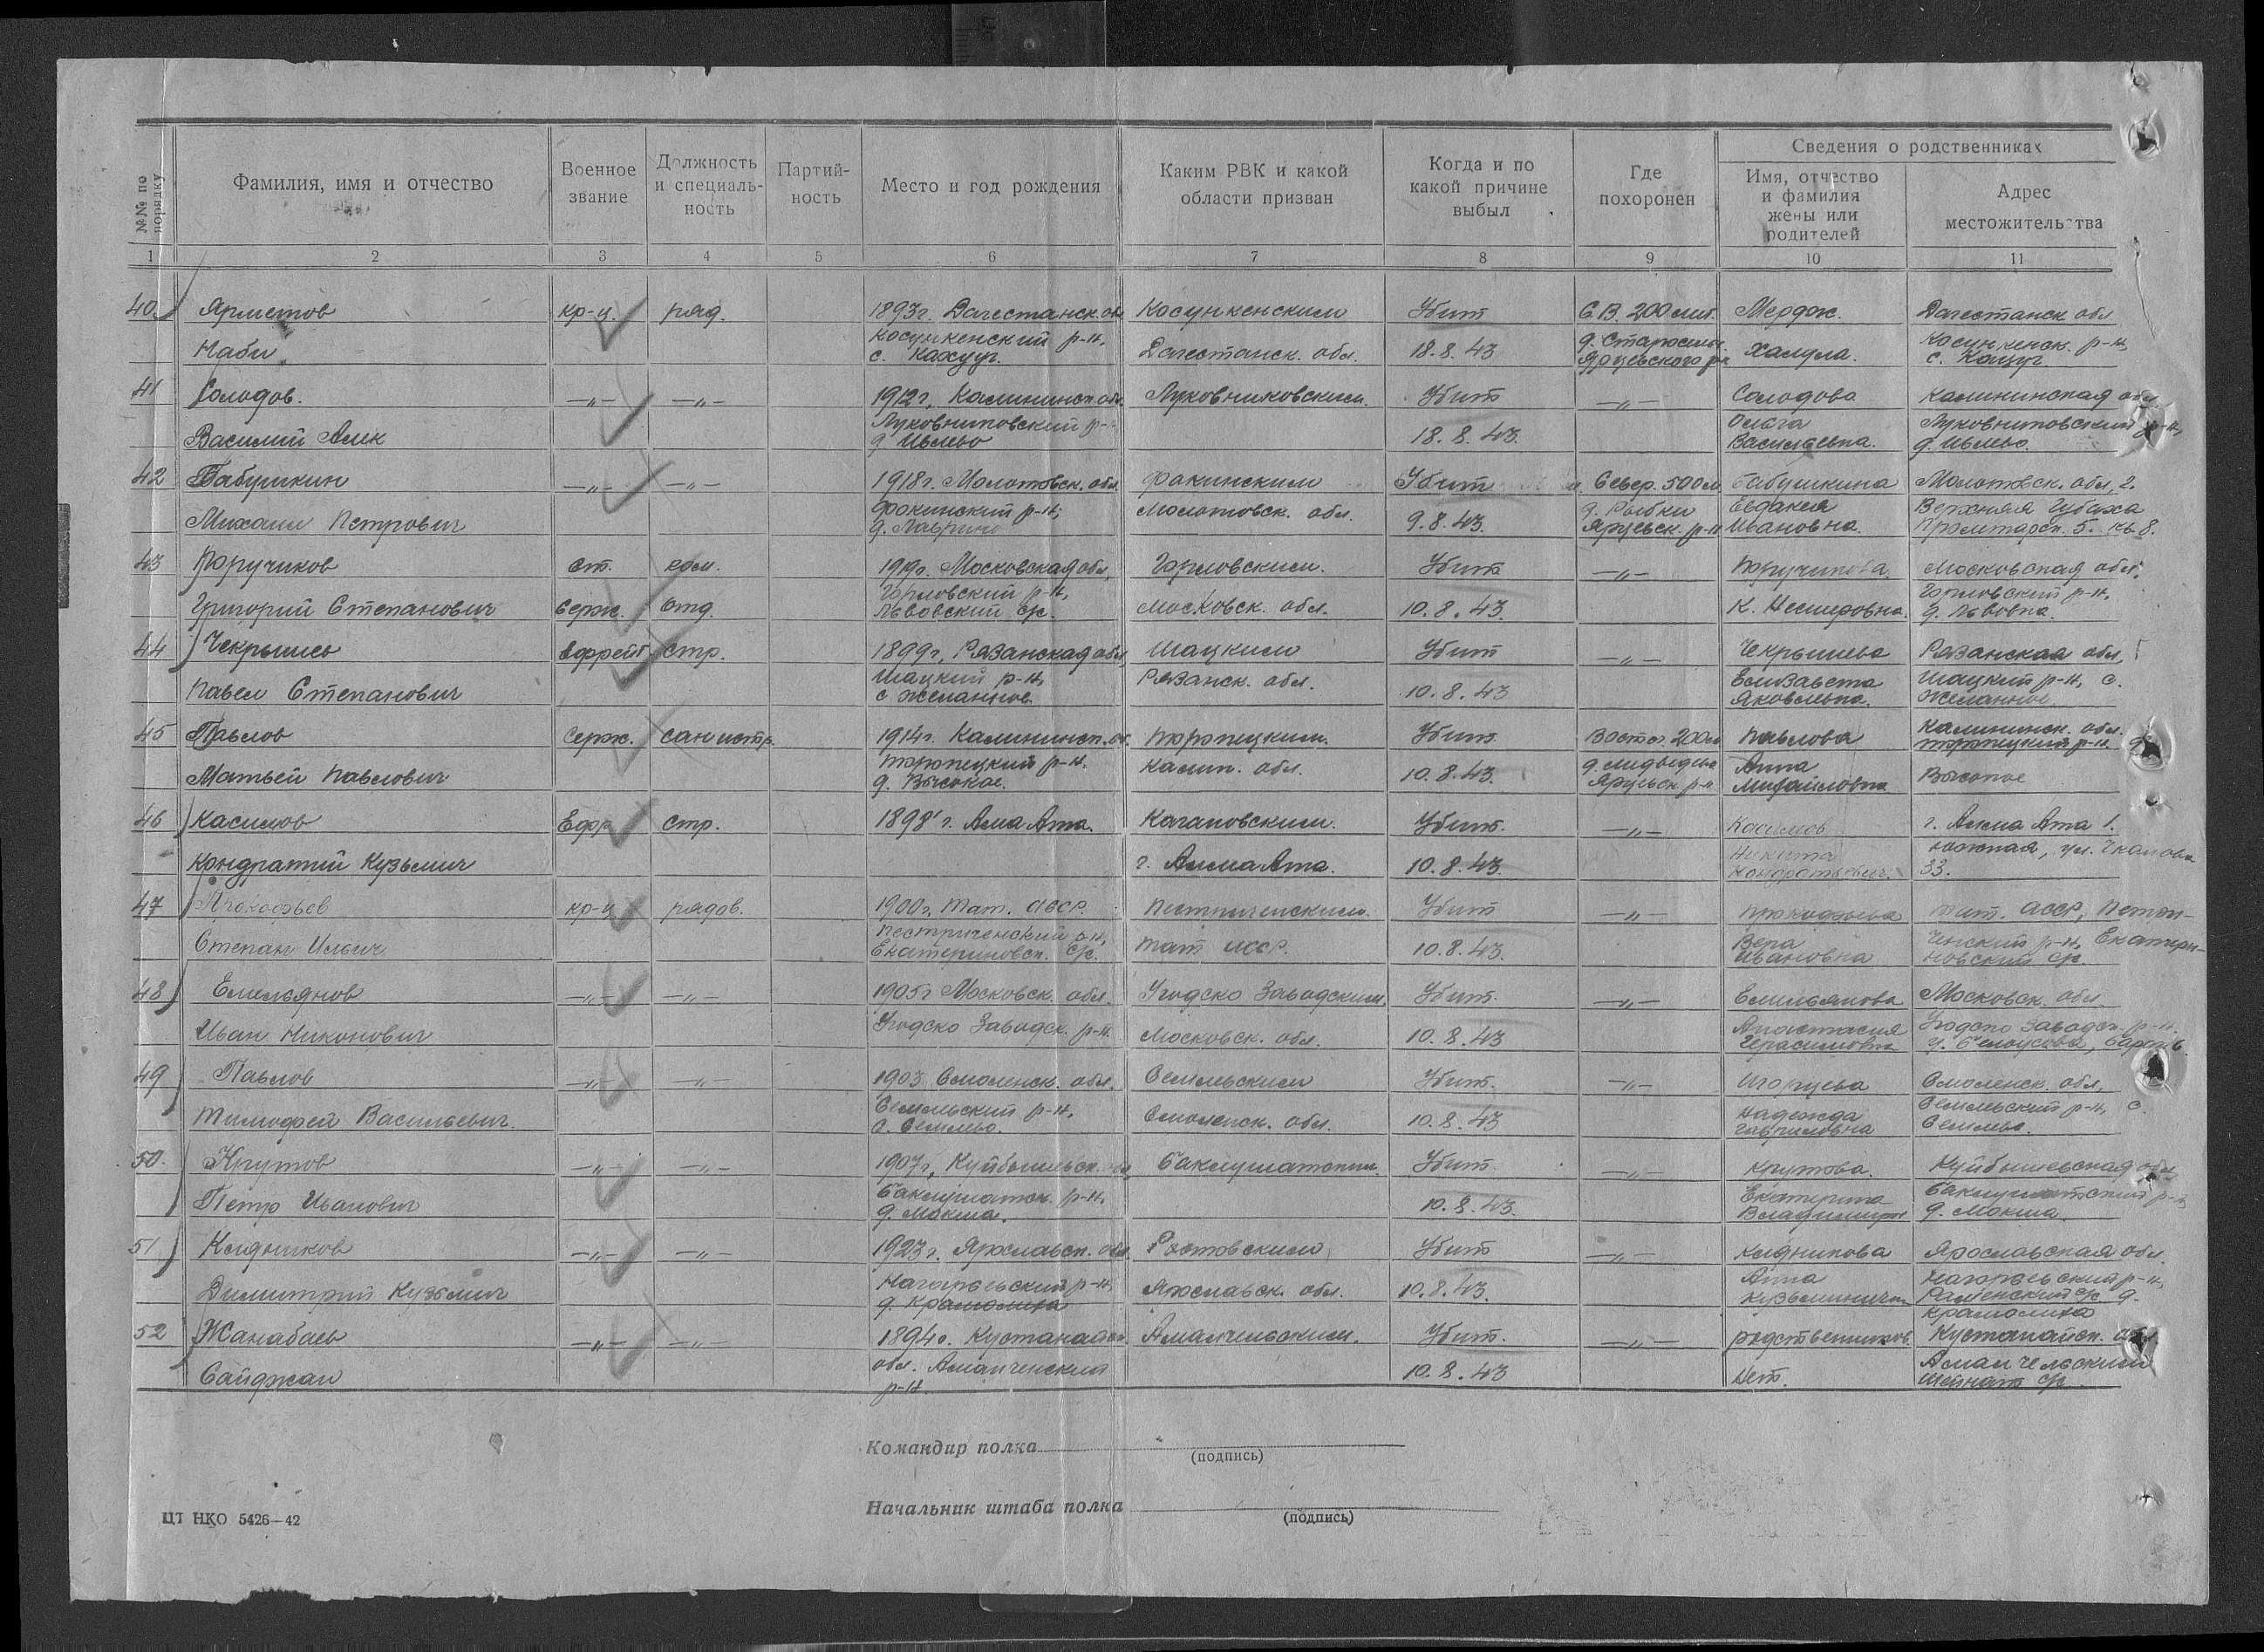 №№ по порядку
Фамилия, имя и отчество
Военное звание
Должность и специаль-ность
Партий-ность
Место и год рождения
Каким РВК и какой области призван
Когда и по какой причине выбыл
Где похоронен
Сведения о родственниках
Имя, отчество и фамилия жены или родителей
Адрес местожительства
1 2 3 4 5 6 7 8 9 10 11
40 Ярметов кр-ц. ряд. 1893г. Дагестанск. обл Косункенским Убит С.В. 200 мт. Мердж. Дагестанск обл
Наби Косункенский р-н, с. Кахуг. Дагестанск. обл. 18.8.43 д. Старосель. Ярцевского р-н Халула. Косункенск. р-н, с. Кацуг
41 Солодов. —„— —„— 1912г, Калининск обл. Луковниковским. Убит —„— Солодова Калининская обл.
Василий Алек Луковниковский р-н д. Ивлево 18.8.43. Ольга Васильевна. Луковниковский р-н, д. Ивлево.
42 Бабушкин —„— —„— 1918г. Молотовск. обл. Фокинским Убит Север. 500м Бабушкина Молотовск. обл, г.
Михаил Петрович Фокинский р-н, д. Лаврино Молотовск. обл. 9.8.43. д. Рыбки Ярцевск. р-н Евдакея Ивановна. Верхняя Губаха Пролетарск. 5. кв 8.
43 Поручиков ст. ком. 1919г. Московская обл, Горловским. Убит —„— Поручикова Московская обл,
Григорий Степанович серж. отд. Горловский р-н, Львовский с/с. Московск. обл. 10.8.43. К. Несмеровна. Горловский р-н, д. Львовка.
44 Чекрышев ефрейт стр. 1899г, Рязанская обл, Шацким Убит —„— Чекрышева Рязанская обл,
Павел Степанович Шацкий р-н, с Желанное. Рязанск. обл. 10.8.43 Елизавета Яковлевна. Шацкий р-н, с. Желанное
45 Павлов Серж. сан истр. 1914г. Калининск. об. Торопецким. Убит. Восто. 200м Павлова Калининск. обл. Торопецкий р-н. д.
Матвей Павлович Торопецкий р-н. д. Высокое. Калин. обл. 10.8.43. д. Медведево Ярцевск. р-н Анна Михайловна Высокое
46 Касимов Ефр стр. 1898 г. Алма Ата. Кагановским. Убит. —„— Касимов г. Алма Ата 1.
Кондратий Кузьмич г. Алма Ата. 10.8.43. Никита Кондратьевич. южная, ул. Чкалова 33.
47 Прокофьев кр-ц рядов. 1900г, Тат. АССР. Пестриченским. Убит —„— Прокофьева Тат. АССР, Пестри-
Степан Ильич Пестриченский р-н, Екатериновск. с/с. Тат АССР. 10.8.43. Вера Ивановна ченский р-н, Екатери-новский с/с.
48 Емельянов —„— —„— 1905г Московск. обл. Угодско Заводским. Убит. —„— Емельянова Московск. обл.
Иван Никонович Угодско Заводск. р-н. Московск. обл. 10.8.43 Анастасия Герасимовна Угодско Заводск. р-н. д. Белоусова, барак 6.
49 Павлов —„— —„— 1903 Смоленск. обл. Семлевским Убит. —„— Смоленск. обл,
Тимофей Васильевич. Семлевский р-н, с. Семлево. Смоленск. обл. 10.8.43 Надежда Гавриловна Семлевский р-н, с. Семлево.
50. Крутов —„— —„— 1907г, Куйбышевск. обл, Баклушатским. Убит. —„— Крутова. Куйбышевская обл
Петр Иванович Баклушатск. р-н. д. Мокша. 10.8.43. Екатерина Владимиров Баклушатский р-н, д. Мокша.
51 Кидников —„— —„— 1923г. Ярославск. обл. Ростовским Убит —„— Кидникова Ярославская обл.
Димитрий Кузьмич Нагорьевский р-н, д. Крамолиха Ярославск. обл. 10.8.43. Анна Кузьминична Нагорьевский р-н, Раменский с/с д. Крамолиха
52 Жанабаев —„— —„— 1894г. Кустанайск. Аманчельским. Убит. —„— родственников Кустанайск. обл.
Сайджан обл. Аманченский р-н. 10.8.43 нет. Аманчельский с/с.
Командир полка
(подпись)
Начальник штаба полка
(подпись)
ЦТ НКО 5426—42